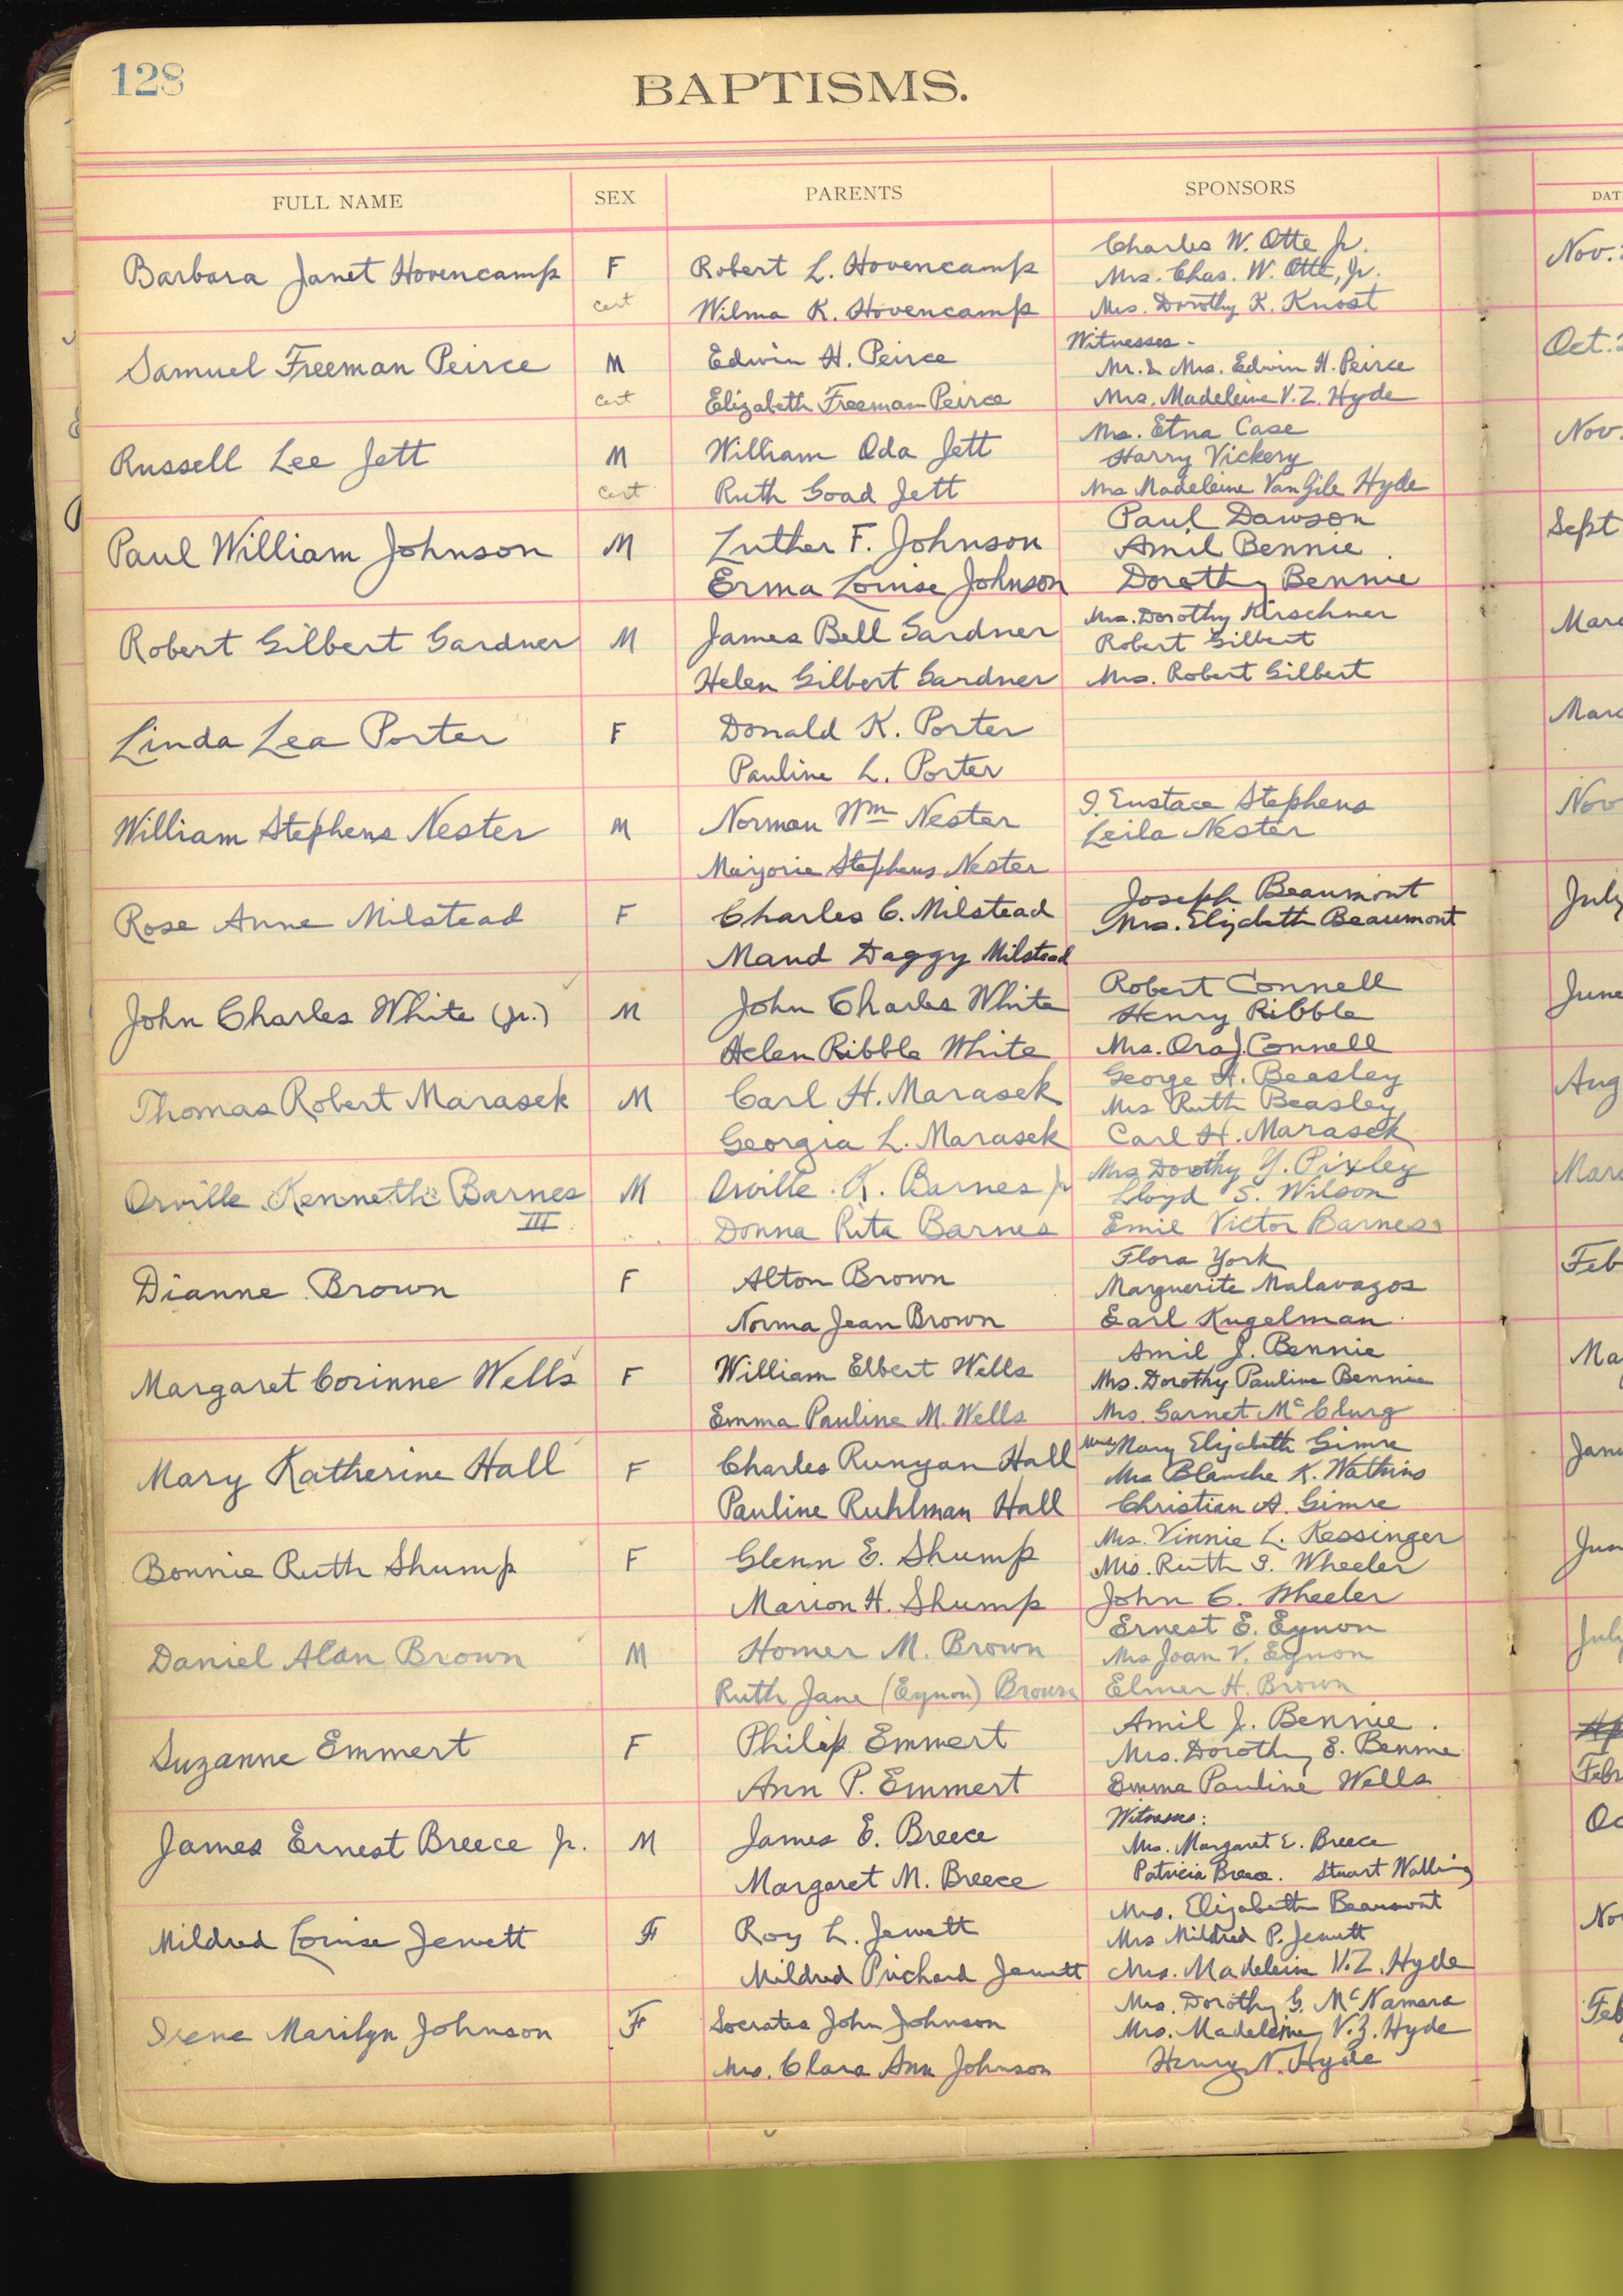 128
BAPTISMS.
FULL NAME SEX PARENTS SPONSORS DAT
Charles W. Otte Jr.
Barbara Janet Hovencamp F Robert L. Hovencamp Mrs. Chas. W. Otte, Jr. Nov.
cert Wilma K. Hovencamp Mrs. Dorothy K. Knost
Witnesses -
Samuel Freeman Peirce M Edwin H. Peirce Mr. & Mrs. Edwin H. Peirce Oct.
cert Elizabeth Freeman Peirce Mrs. Madeleine V.Z. Hyde
Mrs. Etna Case
Russell Lee Jett M William Oda Jett Harry Vickery Nov.
cert Ruth Goad Jett Mrs Madeleine Van Zile Hyde
Paul Dawson
Paul William Johnson M Luther F. Johnson Amil Bennie. Sept
Erma Louise Johnson Dorothy Bennie
Mrs. Dorothy Kirschner
Robert Gilbert Gardner M James Bell Gardner Robert Gilbert Marc
Helen Gilbert Gardner Mrs. Robert Gilbert
Linda Lea Porter F Donald K. Porter Marc
Pauline L. Porter
I. Eustace Stephens
William Stephens Nester M Norman Wm Nester Leila Nester Nov
Marjorie Stephens Nester
Joseph Beaumont
Rose Anne Milstead F Charles C. Milstead Mrs. Elizabeth Beaumont July
Maud Daggy Milstead
Robert Connell
John Charles White (Jr.) M John Charles White Henry Ribble June
Helen Ribble White Mrs. Ora J. Connell
George H. Beasley
Thomas Robert Marasek M Carl H. Marasek Mrs Ruth Beasley Aug
Georgia L. Marasek Carl H. Marasek
Mrs Dorothy Y. Pixley
Orville Kenneth Barnes M Orville K. Barnes Jr Lloyd S. Wilson Marc
III Donna Rita Barnes Emil Victor Barnes
Flora York
Dianne Brown F Alton Brown Marguerite Malavazos Feb
Norma Jean Brown Earl Kugelman
Amil J. Bennie
Margaret Corinne Wells F William Elbert Wells Mrs. Dorothy Pauline Bennie Ma
Emma Pauline M. Wells Mrs. Garnet McClurg
Mrs Mary Elizabeth Gimre
Mary Katherine Hall F Charles Runyan Hall Mrs Blanche K. Watkins Janu
Pauline Ruhlman Hall Christian A. Gimre
Mrs. Vinnie L. Kessinger
Bonnie Ruth Shump F Glenn E. Shump Mrs. Ruth I. Wheeler Jun
Marion H. Shump John C. Wheeler
Ernest E. Eynon
Daniel Alan Brown M Homer M. Brown Mrs Joan V. Eynon July
Ruth Jane (Eynon) Brown Elmer H. Brown
Amil J. Bennie.
Suzanne Emmert F Philip Emmert Mrs. Dorothy E. Bennie
Ann P. Emmert Emma Pauline Wells Febr
Witnesses:
James Ernest Breece Jr. M James E. Breece Mrs. Margaret E. Breece Oc
Margaret M. Breece Patricia Breece. Stuart Walling
Mrs. Elizabeth Beaumont
Mildred Louise Jewett F Roy L. Jewett Mrs Mildred P. Jewett No
Mildred Prichard Jewett Mrs. Madeleine V.Z. Hyde
Mrs. Dorothy G. McNamara
Irene Marilyn Johnson F Socrates John Johnson Mrs. Madeleine V.Z. Hyde Feb
Mrs. Clara Ann Johnson Henry N. Hyde